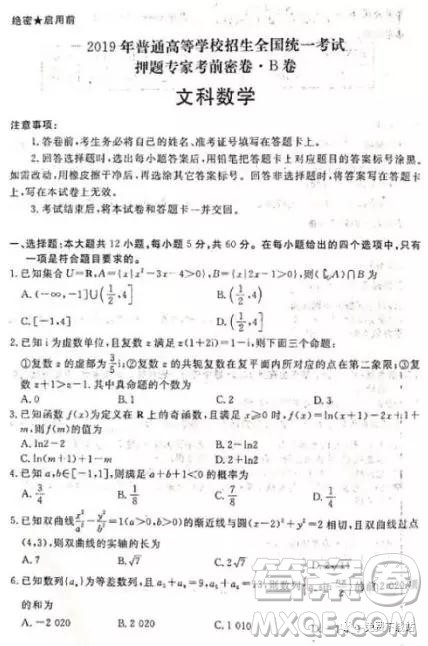 绝密★启用前
2019年普通高等学校招生全国统一考试
押题专家考前密卷·B卷
文科数学
注意事项:
1.答卷前,考生务必将自己的姓名、准考证号填写在答题卡上。
2.回答选择题时,选出每小题答案后,用铅笔把答题卡上对应题目的答案标号涂黑。
如需改动,用橡皮擦干净后,再选涂其它答案标号。回答非选择题时,将答案写在答题卡
上,写在本试卷上无效。
3.考试结束后,将本试卷和答题卡一并交回。
一、选择题:本大题共12小题,每小题5分,共60分。在每小题给出的四个选项中,只有
一项是符合题目要求的。
1.已知集合U=R,A={x|x²-3x-4>0},B={x|2x-1>0},则(∁ᵤA)∩B为
A.(-∞,-1]∪(1/2,4] B.(1/2,4]
C.[-1,4] D.[1/2,4]
2.已知i为虚数单位,且复数z满足z(1+2i)=1-i,则下面三个命题:
①复数z的虚部为3/5i;②复数z的共轭复数在复平面内所对应的点在第二象限;③复
数z+1>z-1.其中真命题的个数为
A.0 B.1 C.2 D.3
3.已知函数f(x)为定义在R上的奇函数,且满足x≥0时,f(x)=ln(x+1)-2x+1+
m,则f(m)的值为
A.ln2-2 B.2-ln2
C.ln(m+1)+1-m D.2+ln2
4.已知a,b∈[-1,1],则满足a+b+1<0的概率为
A.3/4 B.1/8 C.7/8 D.1/4
5.已知双曲线x²/a²-y²/b²=1(a>0,b>0)的渐近线与圆(x-2)²+y²=2相切,且双曲线过点
(4,3),则双曲线的实轴的长为
A.7 B.√7 C.2√7
6.已知数列{aₙ}为等差数列,且满足a₂+a₄=
的和为
A.-2 020 B.2 020 C.1 010
答案圈
MXQE.COM